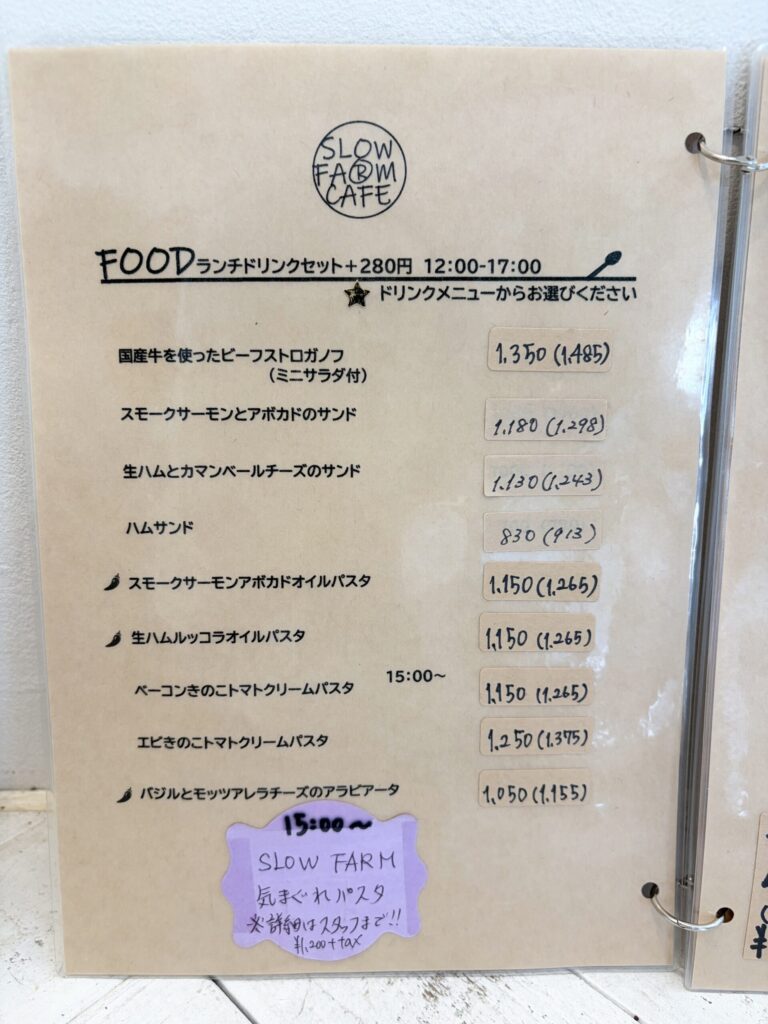 SLOW
FARM
CAFE
FOOD ランチドリンクセット+280円 12:00-17:00
ドリンクメニューからお選びください
国産牛を使ったビーフストロガノフ 1.350(1.485)
(ミニサラダ付)
スモークサーモンとアボカドのサンド 1.180(1.298)
生ハムとカマンベールチーズのサンド 1.130(1.243)
ハムサンド 830(913)
スモークサーモンアボカドオイルパスタ 1.150(1.265)
生ハムルッコラオイルパスタ 1.150(1.265)
ベーコンきのこトマトクリームパスタ 15:00~ 1.150(1.265)
エビきのこトマトクリームパスタ 1.250(1.375)
バジルとモッツアレラチーズのアラビアータ 1.050(1.155)
15:00~
SLOW FARM
気まぐれパスタ
※詳細はスタッフまで!!
¥1,200+tax
¥